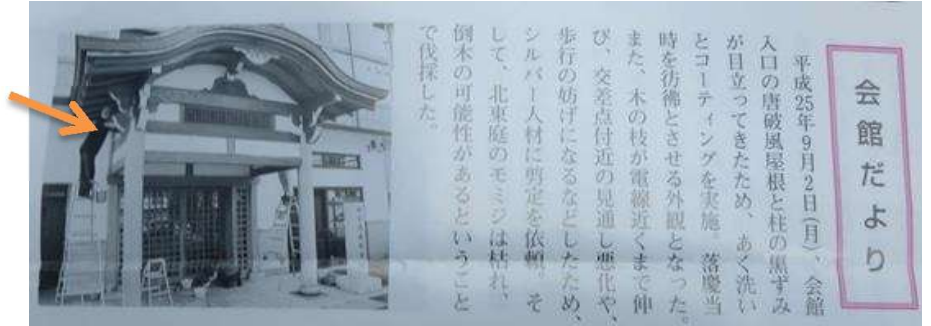 会館だより
平成25年9月2日(月)、会館
入口の唐破風屋根と柱の黒ずみ
が目立ってきたため、あく洗い
とコーティングを実施。落慶当
時を彷彿とさせる外観となった。
また、木の枝が電線近くまで伸
び、交差点付近の見通し悪化や、
歩行の妨げになるなどしたため、
シルバー人材に剪定を依頼。そ
して、北東庭のモミジは枯れ、
倒木の可能性があるということ
で伐採した。